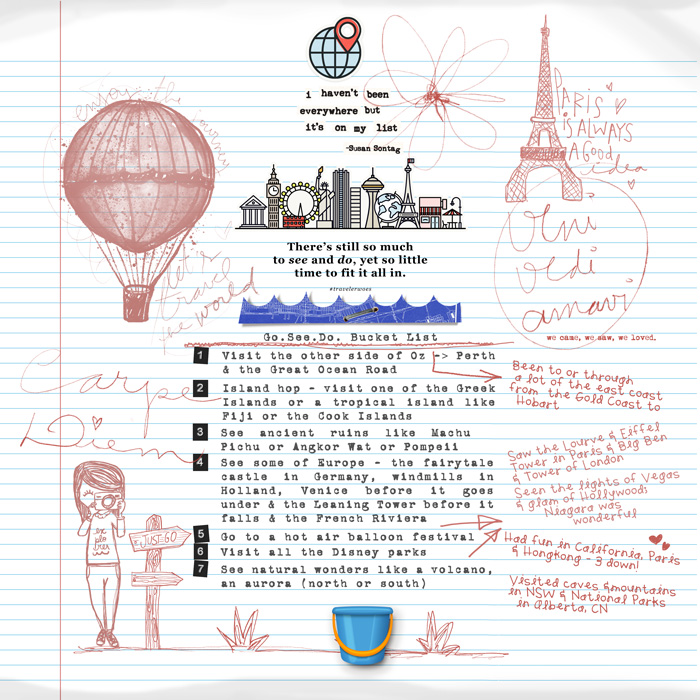 i haven't been
everywhere but
it's on my list
-Susan Sontag
enjoy the journey
let's
travel
the world
PARIS
is ALWAYS
a GOOD
idea
There's still so much
to see and do, yet so little
time to fit it all in.
#travelerwoes
Veni
vedi
amavi
we came, we saw, we loved.
Go.See.Do. Bucket List
1 Visit the other side of Oz -> Perth
& the Great Ocean Road
2 Island hop - visit one of the Greek
Islands or a tropical island like
Fiji or the Cook Islands
3 See ancient ruins like Machu
Pichu or Angkor Wat or Pompeii
4 See some of Europe - the fairytale
castle in Germany, windmills in
Holland, Venice before it goes
under & the Leaning Tower before it
falls & the French Riviera
5 Go to a hot air balloon festival
6 Visit all the Disney parks
7 See natural wonders like a volcano,
an aurora (north or south)
Carpe
Diem
explorer
JUST GO
Been to or through
a lot of the east coast
from the Gold Coast to
Hobart
Saw the Lourve & Eiffel
Tower in Paris & Big Ben
& Tower of London
Seen the lights of Vegas
& glam of Hollywood;
Niagara was
wonderful
Had fun in California, Paris
& Hongkong - 3 down!
Visited caves & mountains
in NSW & National Parks
in Alberta, CN